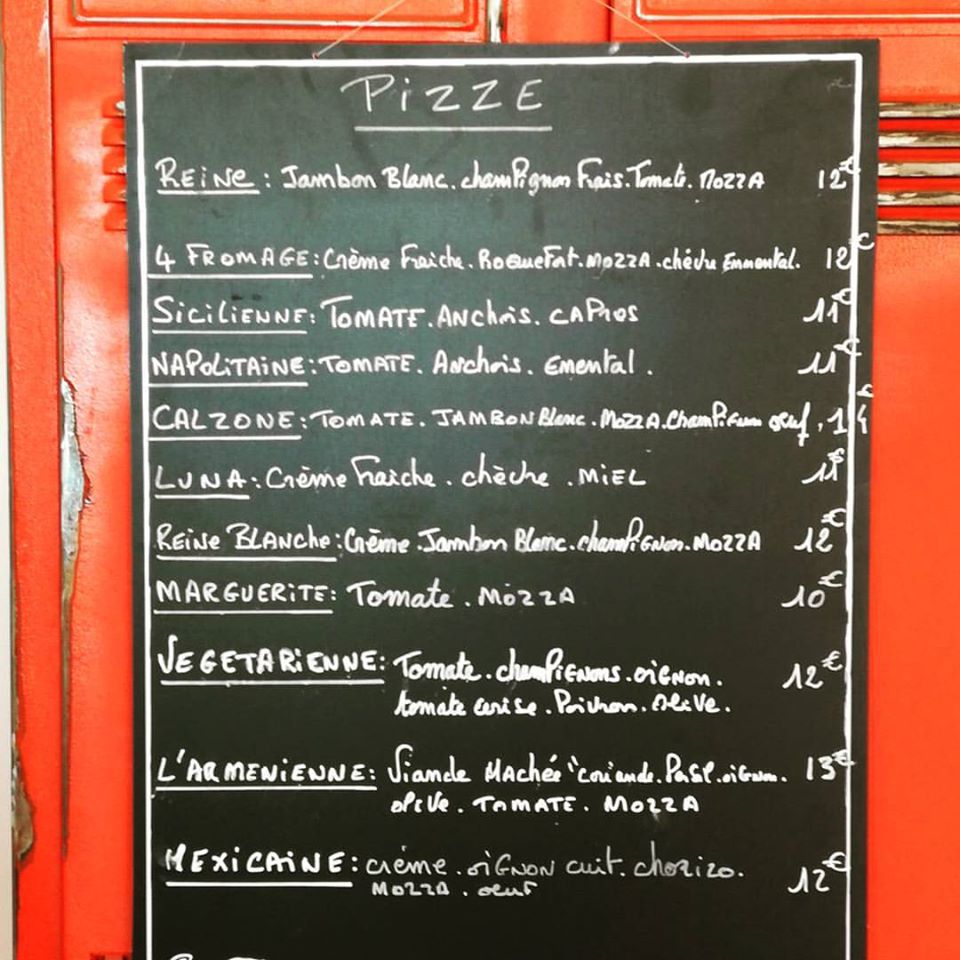 PiZZE
REiNe : Jambon Blanc. champignon Frais. Tomate. MOZZA 12€
4 FROMAGE : Crème Fraiche. RoqueFort. MOZZA. chèvre Emmental. 12€
SiCiLiENNE : TOMATE. Anchois. CAPRES 11€
NAPOLiTAiNE : TOMATE. Anchois. Emental. 11€
CALZONE : TOMATE. JAMBON Blanc. MOZZA. Champignon oeuf. 14€
LUNA : Crème Fraiche. chèvre. MiEL 11€
REiNe BLANche : Crème. Jambon Blanc. champiGNON. MOZZA 12€
MARGUERiTE : Tomate. MOZZA 10€
VEGETARiENNE : Tomate. champiGNons. oiGNon. 12€
tomate cerise. Poivron. OliVe.
L'ARMENiENNE : Viande HAchée "coriande. PeRSil. oiGnon. 13€
oliVe. TOMATE. MOZZA
MEXiCAiNE : crème. oiGNON cuit. chorizo. 12€
MOZZA. oeuf